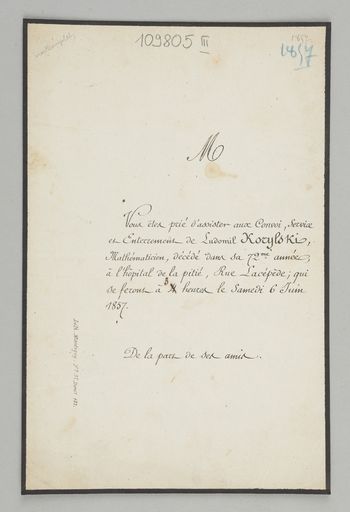 109805 III
1857
M
Vous êtes prié d'assister aux Convoi, Service
et Enterrement de Ludomil Korylski,
Mathématicien, décédé dans sa 72me année,
à l'hôpital de la pitié, Rue Lacépède; qui
se feront à 3 heures le Samedi 6 Juin
1857.
De la part de ses amis.